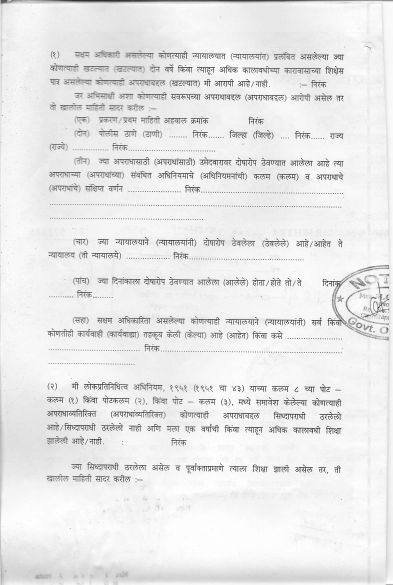 (१) सक्षम अधिकारी असलेल्या कोणत्याही न्यायालयात (न्यायालयांत) प्रलंबित असलेल्या ज्या
कोणत्याही खटल्यात (खटल्यात) दोन वर्षे किंवा त्याहून अधिक कालावधीच्या कारावासाच्या शिक्षेस
पात्र असलेल्या कोणत्याही अपराधाबद्दल (खटल्यात) मी आरोपी आहे/नाही. :– निरंक
जर अभिसाक्षी अशा कोणत्याही स्वरूपाच्या अपराधाबद्दल (अपराधाबद्दल) आरोपी असेल तर
तो खालील माहिती सादर करील :–
(एक) प्रकरण/प्रथम माहिती अहवाल क्रमांक निरंक
(दोन) पोलीस ठाणे (ठाणी) ........ निरंक...... जिल्हा (जिल्हे) .... निरंक...... राज्य
(राज्ये) .............. निरंक.................................
(तीन) ज्या अपराधासाठी (अपराधांसाठी) उमेदवारावर दोषारोप ठेवण्यात आलेला आहे त्या
अपराधाच्या (अपराधांच्या) संबंधित अधिनियमाचे (अधिनियमनांची) कलम (कलम) व अपराधाचे
(अपराधांचे) संक्षिप्त वर्णन ........................... निरंक......................................................
(चार) ज्या न्यायालयाने (न्यायालयांनी) दोषारोप ठेवलेला (ठेवलेले) आहे/आहेत ते
न्यायालय (ती न्यायालये) ................. निरंक...........................................
(पांच) ज्या दिनांकाला दोषारोप ठेवण्यात आलेला (आलेले) होता/होते तो/ते दिनांक
.......... निरंक........
(सहा) सक्षम अधिकारिता असलेल्या कोणत्याही न्यायालयाने (न्यायालयांनी) सर्व किंवा
कोणतीही कार्यवाही (कार्यवाह्या) तहकूब केली (केल्या) आहे (आहेत) किंवा कसे ......................
.................................... निरंक ....................................................................
(२) मी लोकप्रतिनिधित्व अधिनियम, १९५१ (१९५१ चा ४३) याच्या कलम ८ च्या पोट –
कलम (१) किंवा पोटकलम (२), किंवा पोट – कलम (३), मध्ये समावेश केलेल्या कोणत्याही
अपराधाव्यतिरिक्त (अपराधांव्यतिरिक्त) कोणत्याही अपराधाबद्दल सिध्दापराधी ठरलेलो
आहे/सिध्दापराधी ठरलेलो नाही आणि मला एक वर्षाची किंवा त्याहून अधिक कालावधी शिक्षा
झालेली आहे/नाही. : निरंक
ज्या सिध्दापराधी ठरलेला असेल व पूर्वोक्ताप्रमाणे त्याला शिक्षा झाली असेल तर, ती
खालील माहिती सादर करील :–
NOT
Govt. O